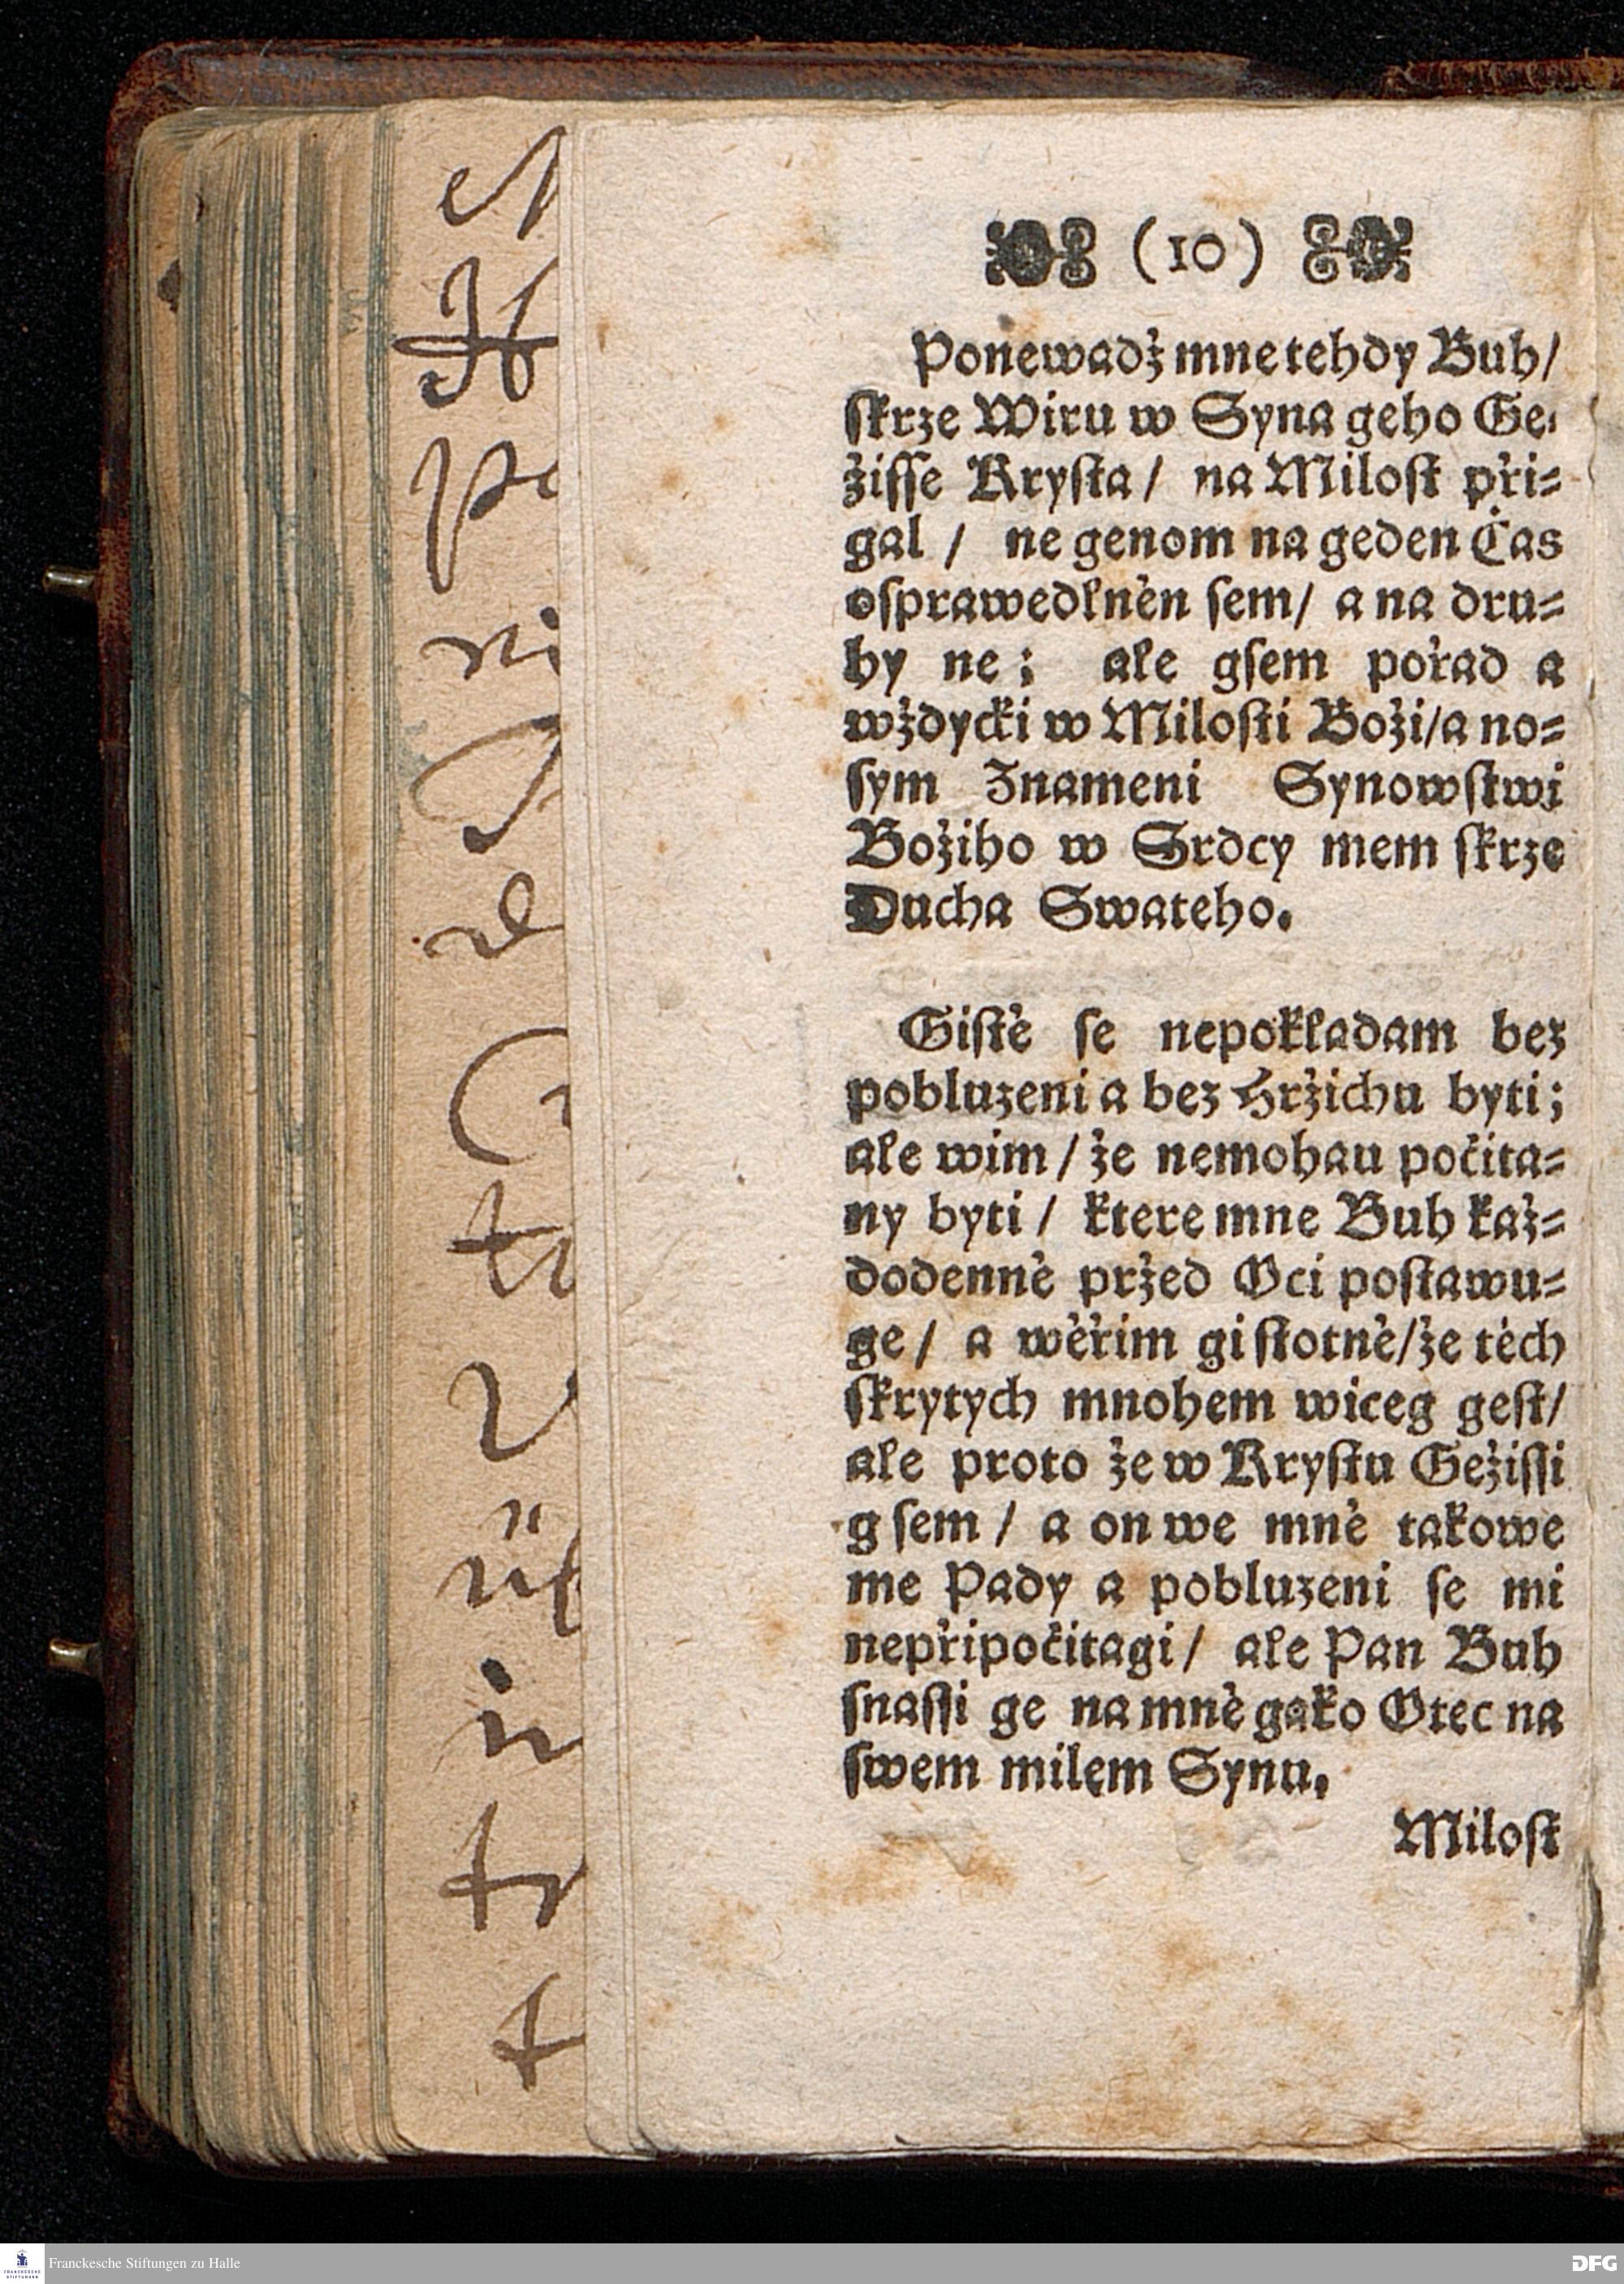 (10)
Ponewadż mne tehdy Buh/
ſkrze Wiru w Syna geho Ge-
żiſſe Kryſta/ na Miloſt při-
gal / ne genom na geden Čas
oſprawedlněn ſem/ a na dru-
hy ne; ale gſem pořad a
wżdycki w Miloſti Boži/a no-
ſym Znameni Synowſtwi
Božiho w Srdcy mem ſkrze
Ducha Swateho.
Giſtě ſe nepokladam bez
pobluzeni a bez Hržichu byti;
ale wim / że nemohau počita-
ny byti / ktere mne Buh każ-
dodenně pržed Oci poſtawu-
ge / a wěřim giſtotně/że těch
ſkrytych mnohem wiceg geſt/
ale proto że w Kryſtu Geżiſſi
gſem / a on we mně takowe
me Pady a pobluzeni ſe mi
nepřipočitagi/ ale Pan Buh
ſnaſſi ge na mně gako Otec na
ſwem milem Synu.
Miloſt
Franckesche Stiftungen zu Halle
DFG